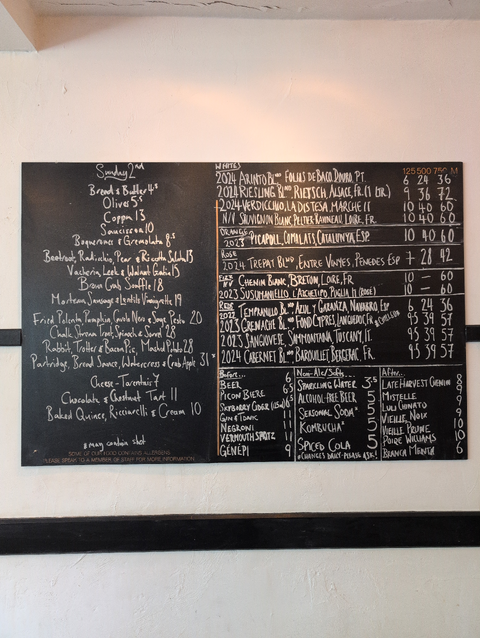 Sunday 2nd
Bread & Butter 4.5
Olives 5.5
Coppa 13
Saucisson 10
Bagnarous & Gremolata 8.5
Beetroot, Radicchio, Pear & Ricotta Salata 13
Vacherin, Leek & Walnut Gratin 15
Brown Crab Souffle 18
Morteau Sausage & Lentils Vinaigrette 19
Fried Polenta, Pumpkin, Cavolo Nero & Sage Pesto 20
Chalk Stream Trout, Spinach & Sorrel 28
Rabbit, Trotter & Bacon Pie, Mashed Potato 28
Partridge, Bread Sauce, Watercress & Crab Apple 31 *
Cheese - Tarentais 7
Chocolate & Chestnut Tart 11
Baked Quince, Ricciarelli & Cream 10
* may contain shot
SOME OF OUR FOOD CONTAINS ALLERGENS
PLEASE SPEAK TO A MEMBER OF STAFF FOR MORE INFORMATION
WHITES
125 500 750 ML
2024 ARINTO BLND FOLIAS DE BACO, DOURO, PT. 6 24 36
2024 RIESLING BLND RIETSCH, ALSACE, FR. (1 LTR) 9 36 72
2024 VERDICCHIO, LA DISTESA, MARCHE IT 10 40 60
N/V SAUVIGNON BLANC, PELTIER-RAVINEAU, LOIRE, FR. 10 40 60
ORANGE
2023 PICAPOLL, COMALATS, CATALUNYA, ESP. 10 40 60
ROSE
2024 TREPAT BLND, ENTRE VINYES, PENEDES ESP 7 28 42
CHENIN BLANC, BRETON, LOIRE, FR. 10 – 60
2023 SUSUMANIELLO L'ARCHETIPO PUGLIA IT (ROSE) 10 – 60
RED
2022 TEMPRANILLO BLND, AZUL Y GARANZA, NAVARRA, ESP 6 24 36
2023 GRENACHE BLND FOND CYPRES, LANGUEDOC, FR 9.5 39 57
2023 SANGIOVESE, SAMMONTANA, TUSCANY, IT. 9.5 39 57
2024 CABERNET BLND BAROUILLET, BERGERAC, FR. 9.5 39 57
Before...
BEER 6
PICON BIERE
SKYBARRY CIDER
GIN & TONIC
NEGRONI 11
VERMOUTH SPRITZ 11
GENEPI 9
Non-Alc/Softs...
SPARKLING WATER 3.5
ALCOHOL-FREE BEER 5
SEASONAL SODA* 5
KOMBUCHA* 5
SPICED COLA 5
*CHANGES DAILY - PLEASE ASK!
After...
LATE HARVEST CHENIN 8
MISTELLE 9
LULU CHINATO 9
VIEILLE NOIX 9
VIEILLE PRUNE 10
POIRE WILLIAMS 10
BRANCA MENTA 6